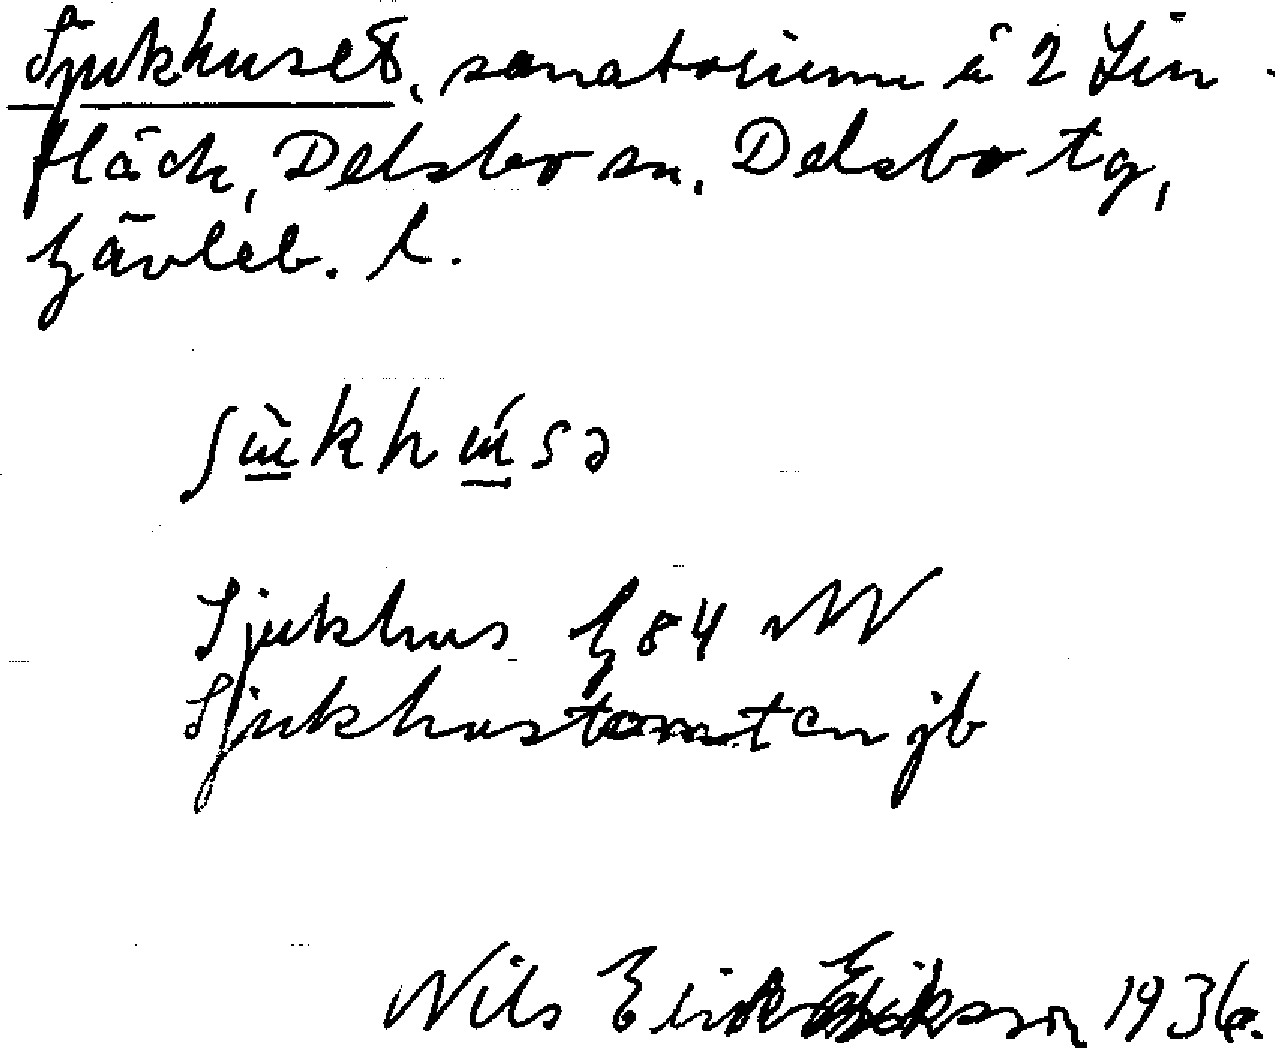 Sjukhuset, sanatorium å 2 Lin-
fläck, Delsbo sn, Delsbo tg,
Gävleb. l.
ʃù̲khú̲sə
Sjukhus G84 NV
Sjukhustomten jb
Nils Erik Eriksson 1936.